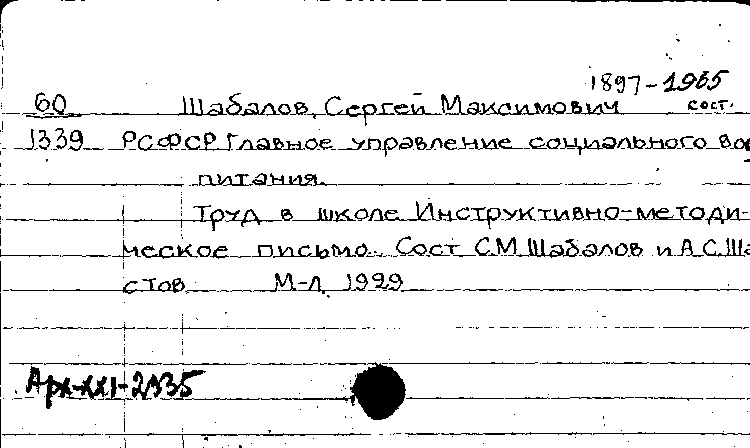 1897-1965
60 Шабалов, Сергей Максимович сост.
1339 РСФСР Главное управление социального вос
питания.
Труд в школе. Инструктивно-методи-
ческое письмо. Сост С.М. Шабалов и А.С. Ша
стов М-Л. 1929
Арх-XXI-2935